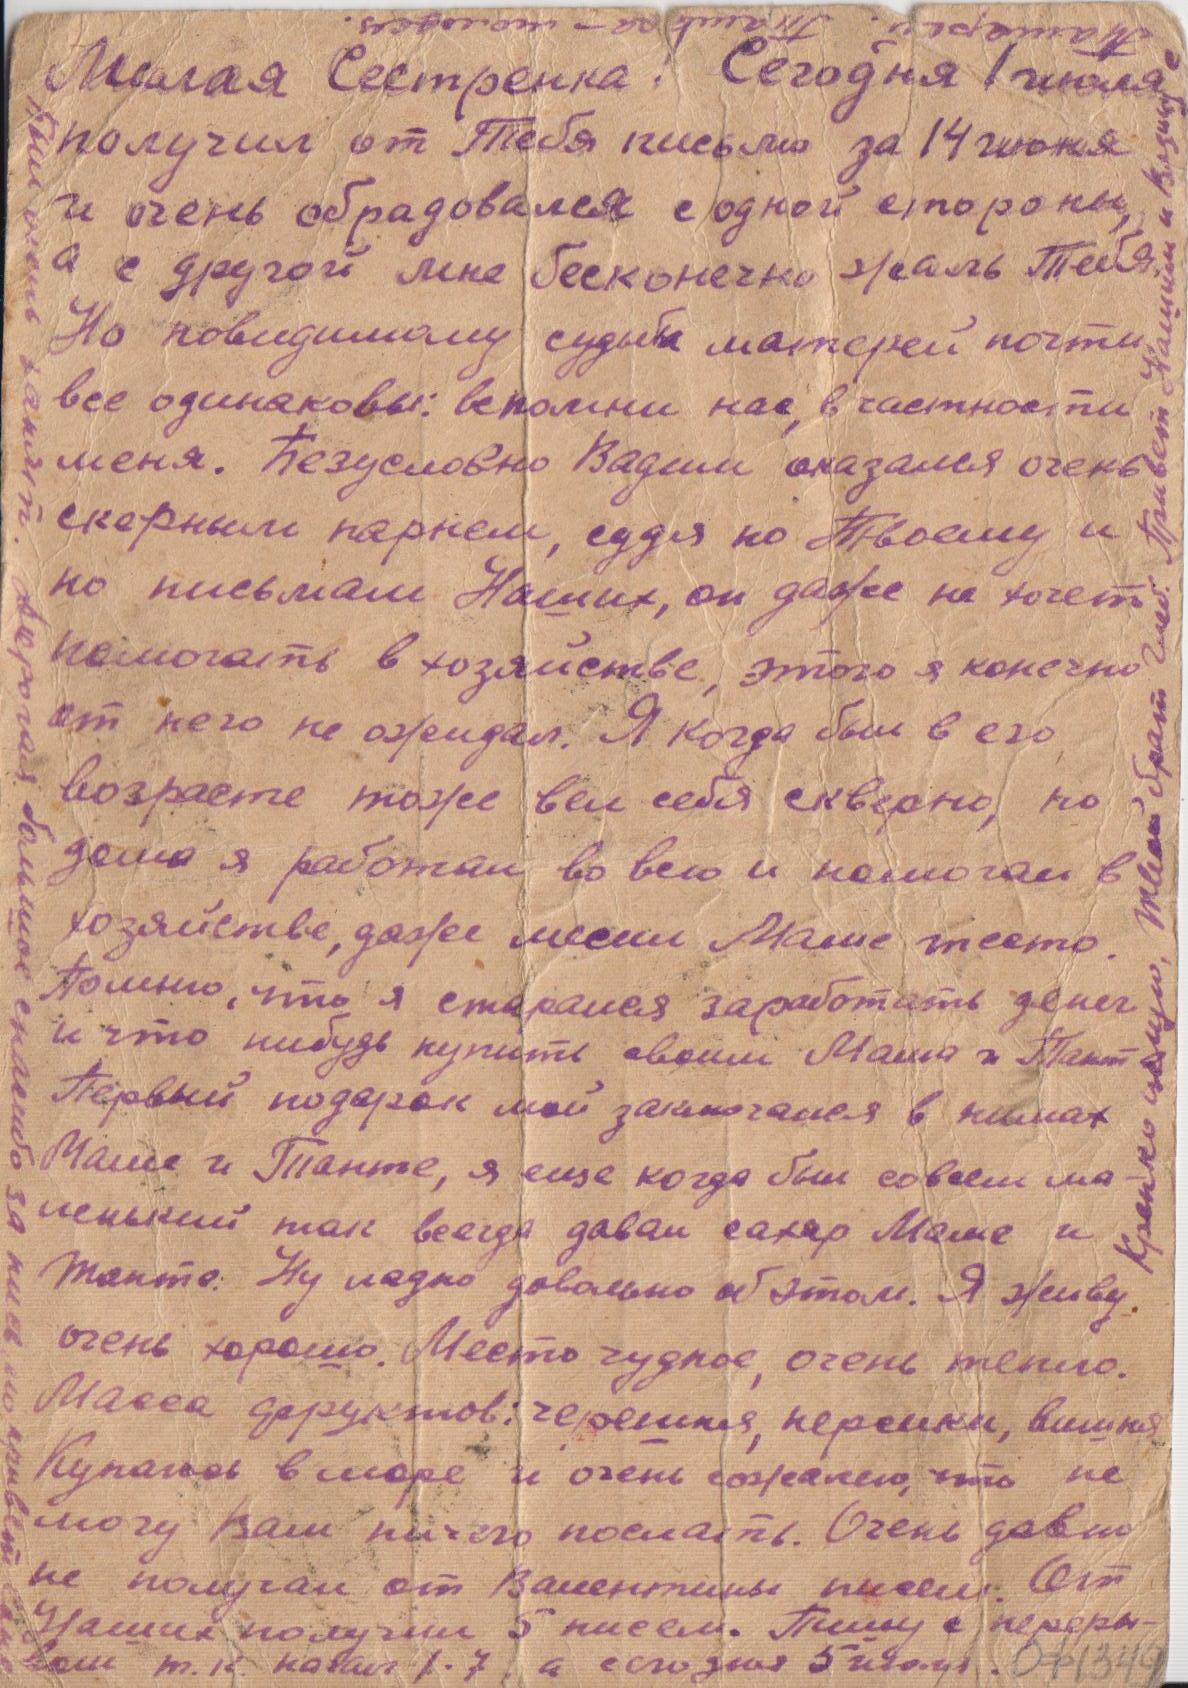 Милая Сестренка! Сегодня 1 июля
получил от Тебя письмо за 14 июня
и очень обрадовался с одной стороны,
а с другой мне бесконечно жаль Тебя.
Но повидимому судьба матерей почти
все одинаковы: вспомни нас, в частности
меня. Безусловно Вадим оказался очень
скверным парнем, судя по Твоему и
по письмам Наших, он даже не хочет
помогать в хозяйстве, этого я конечно
от него не ожидал. Я когда был в его
возрасте тоже вел себя скверно, но
дома я работал во всю и помогал в
хозяйстве, даже месил Маме тесто.
Помню, что я старался заработать денег
и что нибудь купить своим Маме и Тант
Первый подарок мой заключался в
Маме и Танте, я еще когда был совсем ма-
ленький так всегда давал сахар Маме и
Танте. Ну ладно довольно об этом. Я живу
очень хорошо. Место чудное, очень тепло.
Масса фруктов: черешня, персики, вишня
Купаюсь в море и очень сожалею, что не
могу Вам ничего послать. Очень давно
не получал от Валентины писем. От
Наших получил 5 писем. Пишу с переры-
вом т.к. начал 1.7. а сегодня 5 июля.
Крепко целую, твой брат Глеб. Привет Нашим и
Был очень занят. Дорогая большое спасибо за письмо, привет
ОФ 1349